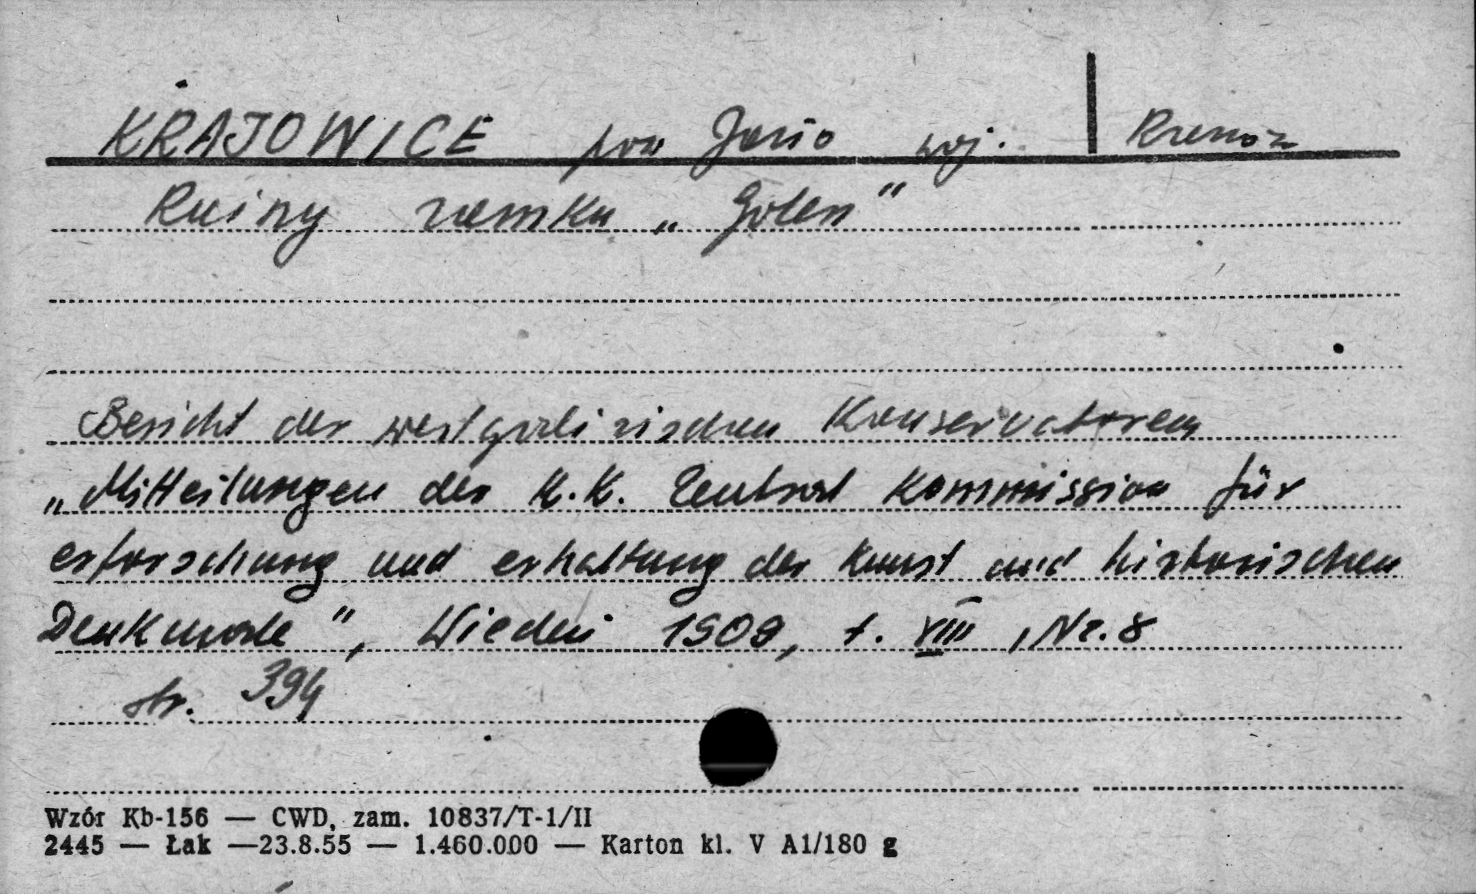 KRAJOWICE pow Jasło woj. Rzeszów
Ruiny zamku „Golesz"
Bericht der westgalizischen Konservatoren
„Mitteilungen der K.K. Zentral Kommission für
erforschung und erhaltung der Kunst und historischen
Denkmale", Wiedeń 1909, t. VIII, Nr. 8
str. 394
Wzór Kb-156 — CWD, zam. 10837/T-1/II
2445 — Łak —23.8.55 — 1.460.000 — Karton kl. V A1/180 g